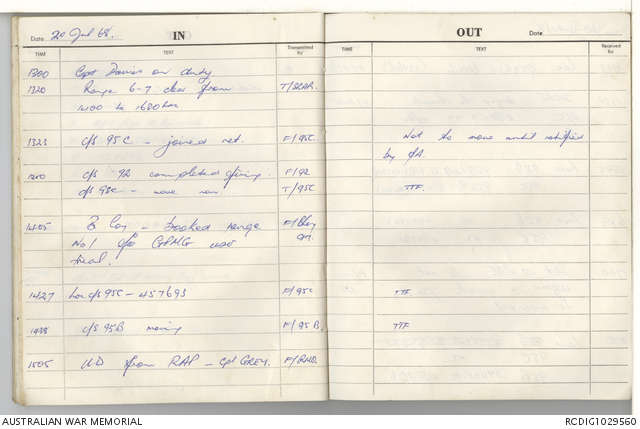 Date 20 Jul 68. IN
TIME TEXT Transmitted by
1300 Cpt on duty
1320 Range 6-7 clear from
1400 to 1600 hrs
1323 c/s 95C - joined net. F/95C.
c/s 9A completed firing. F/9A
c/s 95C - move now T/95C
1405 B Coy - booked range F/BCoy
No1 for GPMG
trial.
1427 Loc c/s 95C - 457693 F/95C
c/s 95B moving F/95B.
1505 from RAP - Cpl GREY.
OUT Date
TIME TEXT Received by
Not to move until notified
by
TTF.
TTF
TTF
AUSTRALIAN WAR MEMORIAL
RCDIG1029560